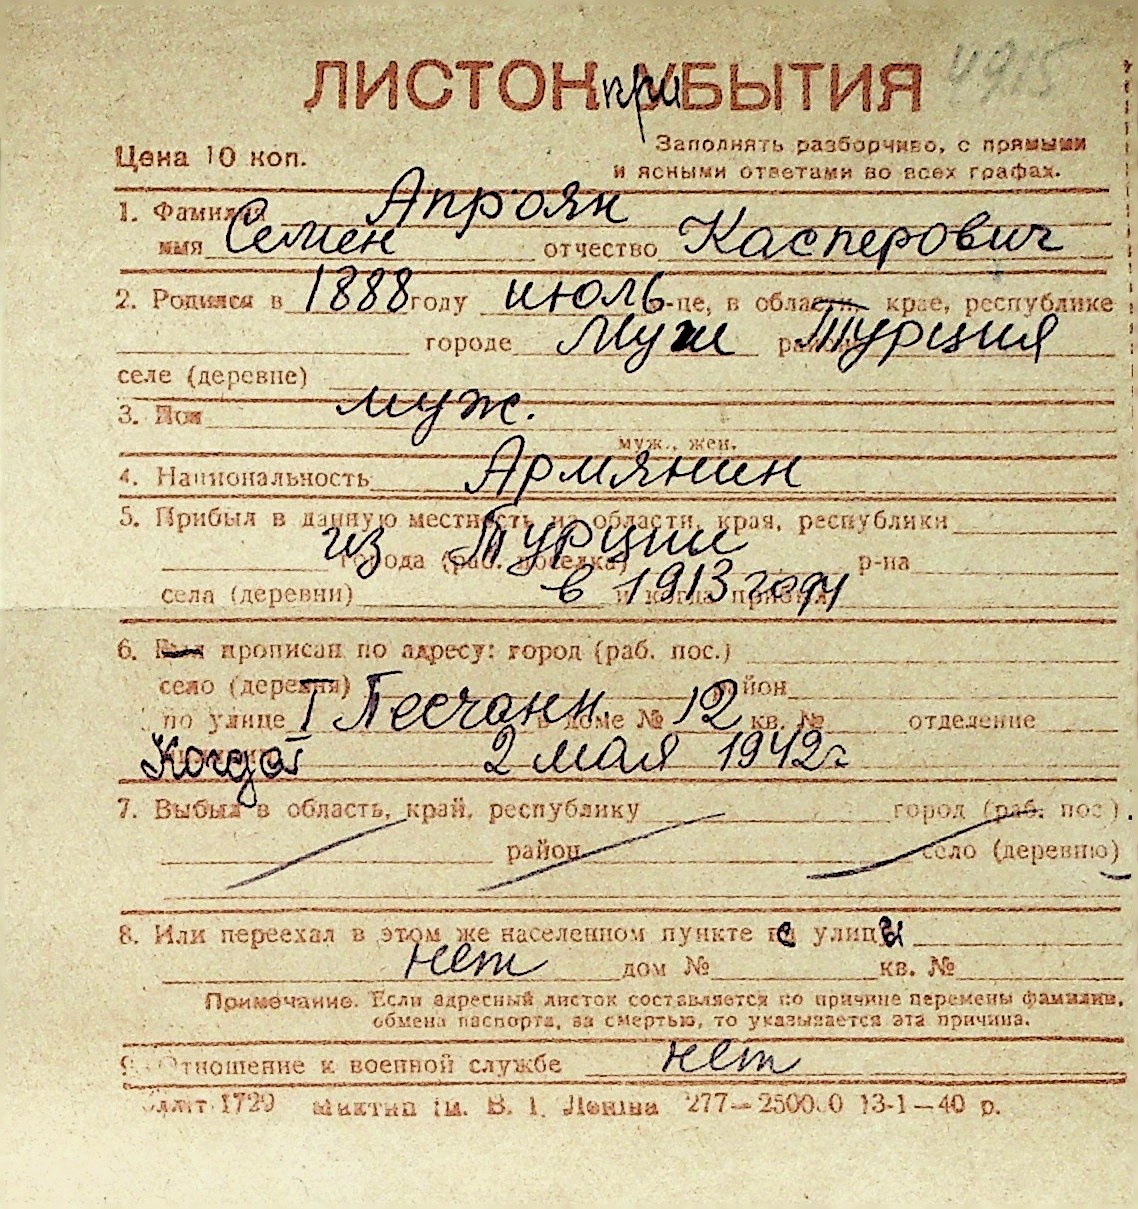 4915
ЛИСТОК прибытия
Цена 10 коп.
Заполнять разборчиво, с прямыми
и ясными ответами во всех графах.
1. Фамилия Апроян
имя Семен отчество Касперович
2. Родился в 1888 году июль м-це, в области, крае, республике
городе Муш районе Турция
селе (деревне)
3. Пол муж.
муж., жен.
4. Национальность Армянин
5. Прибыл в данную местность из области, края, республики
из Турции
города (раб. поселка) р-на
села (деревни) в 1913 году и когда прибыл
6. Был прописан по адресу: город (раб. пос.)
село (деревня) район
по улице I Песчанн. в доме № 12 кв. № отделение
Когда 2 мая 1942 г
7. Выбыл в область, край, республику город (раб. пос).
район село (деревню)
8. Или переехал в этом же населенном пункте с улицы
нет дом № кв. №
Примечание. Если адресный листок составляется по причине перемены фамилии,
обмена паспорта, за смертью, то указывается эта причина.
9. Отношение к военной службе нет
1729 ім. В. І. Леніна 277—250000 13-1—40 р.